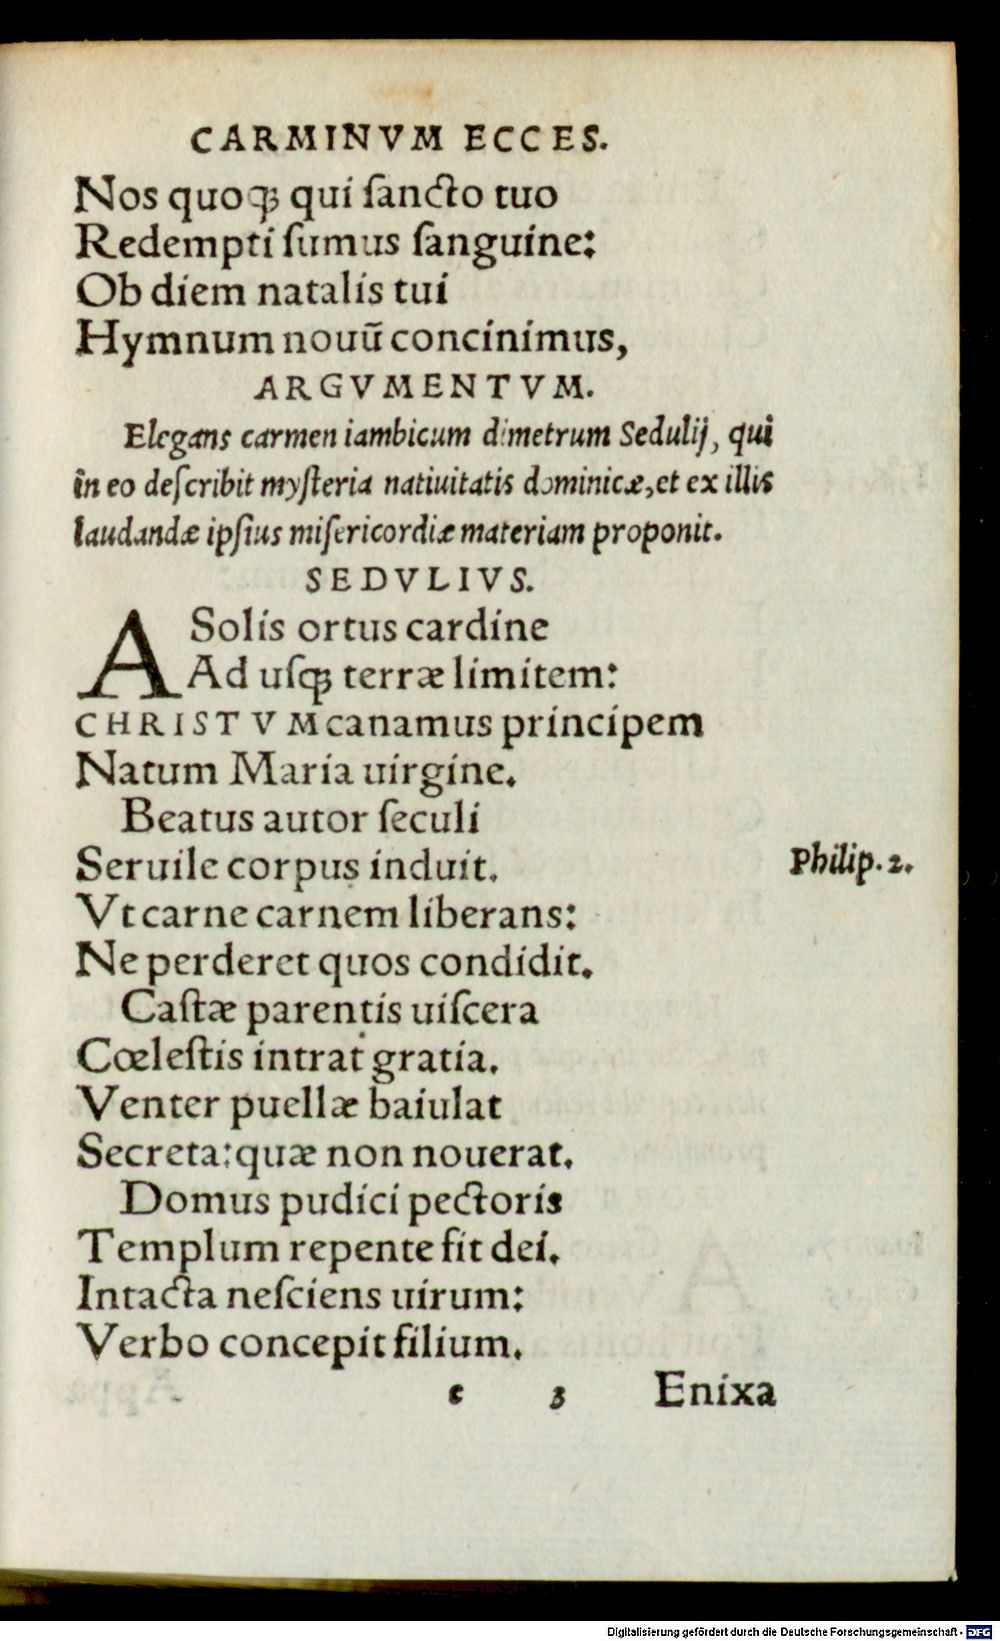 CARMINVM ECCES.
Nos quoqꝫ qui ſancto tuo
Redempti ſumus ſanguine:
Ob diem natalis tui
Hymnum nouū concinimus,
ARGVMENTVM.
Elegans carmen iambicum dimetrum Sedulij, qui
in eo deſcribit myſteria natiuitatis dominicæ, et ex illis
laudandæ ipſius miſericordiæ materiam proponit.
SEDVLIVS.
A Solis ortus cardine
Ad uſqꝫ terræ limitem:
CHRISTVM canamus principem
Natum Maria uirgine.
Beatus autor ſeculi
Seruile corpus induit.
Philip. 2.
Vt carne carnem liberans:
Ne perderet quos condidit.
Caſtæ parentis uiſcera
Cœleſtis intrat gratia.
Venter puellæ baiulat
Secreta: quæ non nouerat.
Domus pudici pectoris
Templum repente fit dei.
Intacta neſciens uirum:
Verbo concepit filium.
c 3 Enixa
Digitalisierung gefördert durch die Deutsche Forschungsgemeinschaft - DFG